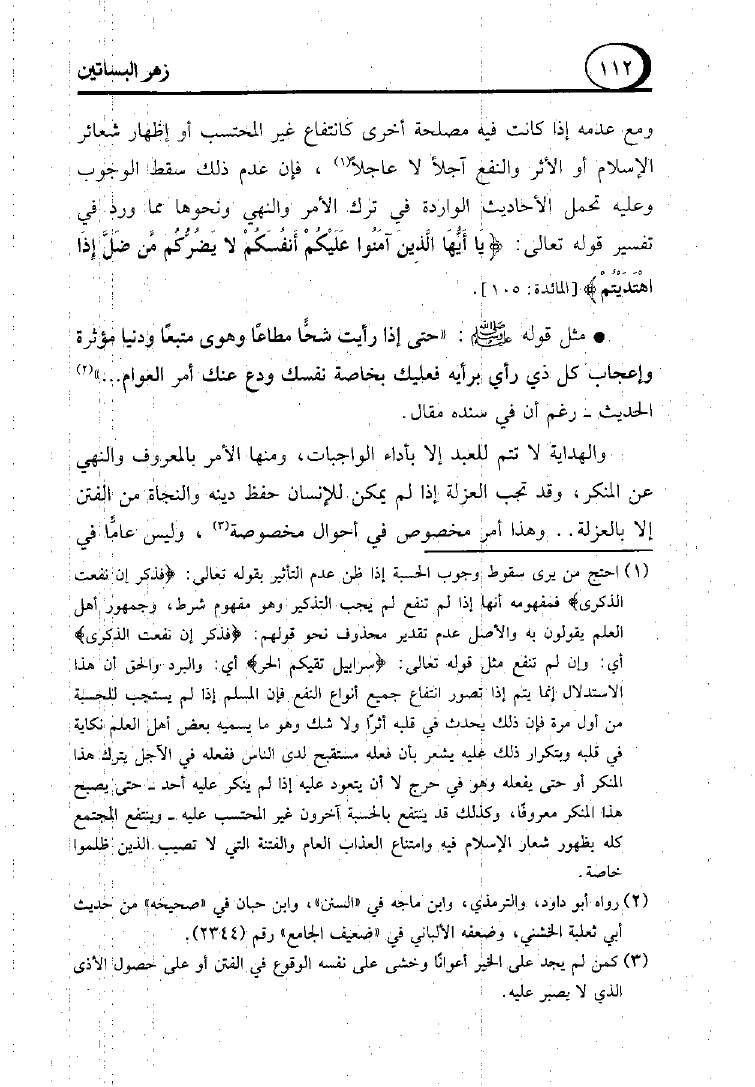 ١١٢
زهر البساتين
ومع عدمه إذا كانت فيه مصلحة أخرى كانتفاع غير المحتسب أو إظهار شعائر
الإسلام أو الأثر والنفع آجلاً لا عاجلاً(١) ، فإن عدم ذلك سقط الوجوب
وعليه تحمل الأحاديث الواردة في ترك الأمر والنهي ونحوها مما ورد في
تفسير قوله تعالى: ﴿يَا أَيُّهَا الَّذِينَ آمَنُوا عَلَيْكُمْ أَنفُسَكُمْ لا يَضُرُّكُم مَّن ضَلَّ إِذَا
اهْتَدَيْتُمْ﴾ [المائدة: ١٠٥].
● مثل قوله ﷺ : «حتى إذا رأيت شحًّا مطاعًا وهوى متبعًا ودنيا مؤثرة
وإعجاب كل ذي رأي برأيه فعليك بخاصة نفسك ودع عنك أمر العوام...»(٢)
الحديث ـ رغم أن في سنده مقال.
والهداية لا تتم للعبد إلا بأداء الواجبات، ومنها الأمر بالمعروف والنهي
عن المنكر، وقد تجب العزلة إذا لم يمكن للإنسان حفظ دينه والنجاة من الفتن
إلا بالعزلة.. وهذا أمر مخصوص في أحوال مخصوصة(٣) ، وليس عامًّا في
(١) احتج من يرى سقوط وجوب الحسبة إذا ظن عدم التأثير بقوله تعالى: ﴿فذكر إن نفعت
الذكرى﴾ فمفهومه أنها إذا لم تنفع لم يجب التذكير وهو مفهوم شرط، وجمهور أهل
العلم يقولون به والأصل عدم تقدير محذوف نحو قولهم: ﴿فذكر إن نفعت الذكرى﴾
أي: وإن لم تنفع مثل قوله تعالى: ﴿سرابيل تقيكم الحر﴾ أي: والبرد والحق أن هذا
الاستدلال إنما يتم إذا تصور انتفاع جميع أنواع النفع فإن المسلم إذا لم يستجب للحسبة
من أول مرة فإن ذلك يحدث في قلبه أثرًا ولا شك وهو ما يسميه بعض أهل العلم نكاية
في قلبه وبتكرار ذلك عليه يشعر بأن فعله مستقبح لدى الناس ففعله في الآجل يترك هذا
المنكر أو حتى يفعله وهو في حرج لا أن يتعود عليه إذا لم ينكر عليه أحد ـ حتى يصبح
هذا المنكر معروفًا، وكذلك قد ينتفع بالحسبة آخرون غير المحتسب عليه ـ وينتفع المجتمع
كله بظهور شعار الإسلام فيه وامتناع العذاب العام والفتنة التي لا تصيب الذين ظلموا
خاصة.
(٢) رواه أبو داود، والترمذي، وابن ماجه في «السنن»، وابن حبان في «صحيحه» من حديث
أبي ثعلبة الخشني، وضعفه الألباني في «ضعيف الجامع» رقم (٢٣٤٤).
(٣) كمن لم يجد على الخير أعوانًا وخشى على نفسه الوقوع في الفتن أو على حصول الأذى
الذي لا يصبر عليه.